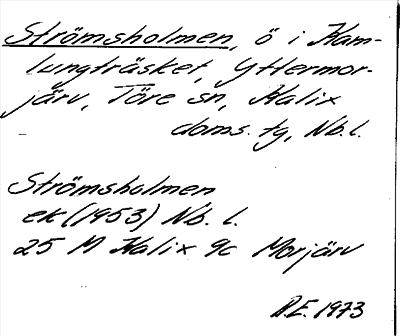 Strömsholmen, ö i Kam-
lungträsket, Yttermor-
järv, Töre sn, Kalix
doms. tg, Nb. l.
Strömsholmen
ek (1953) Nb. l.
25 M Kalix 9c Morjärv
R.E. 1973